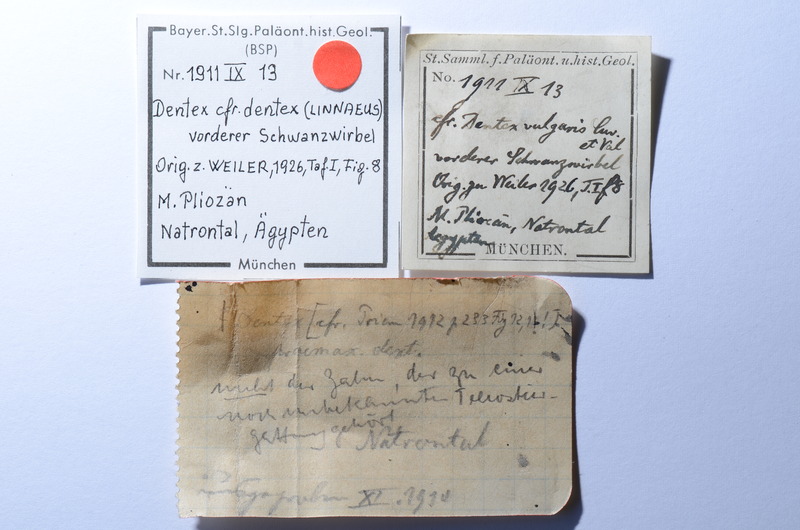 Bayer.St.Slg.Paläont.hist.Geol.
(BSP)
Nr. 1911 IX 13
Dentex cfr. dentex (LINNAEUS)
vorderer Schwanzwirbel
Orig. z. WEILER, 1926, Taf. I, Fig. 8
M. Pliozän
Natrontal, Ägypten
München
St. Samml. f. Paläont. u. hist. Geol.
No. 1911 IX 13
cfr. Dentex vulgaris Cuv.
et Val
vorderer Schwanzwirbel
Orig. zu Weiler 1926, T. I f 8
M. Pliozän, Natrontal
Aegypten
MÜNCHEN.
Dentex [cfr. Priem 1912 p 283 Fig 12,
praemax. dext.
nicht der Zahn, der zu einer
noch unbekannten Teleostier-
gattung gehört
Natrontal
XI. 1910